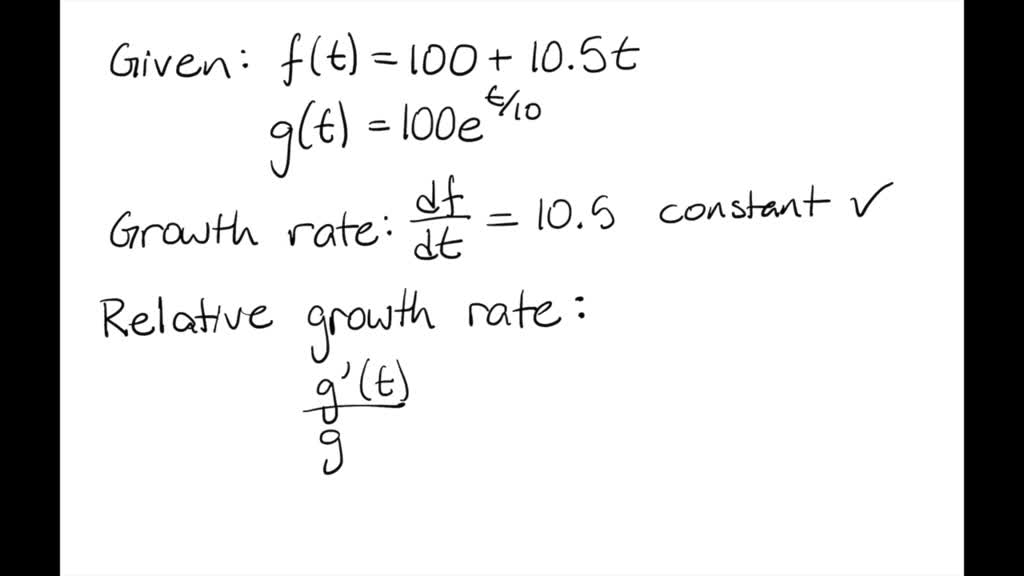 Given: f(t) = 100 + 10.5t
g(t) = 100e^t/10
Growth rate: df/dt = 10.5 constant ✓
Relative growth rate:
g'(t)
g